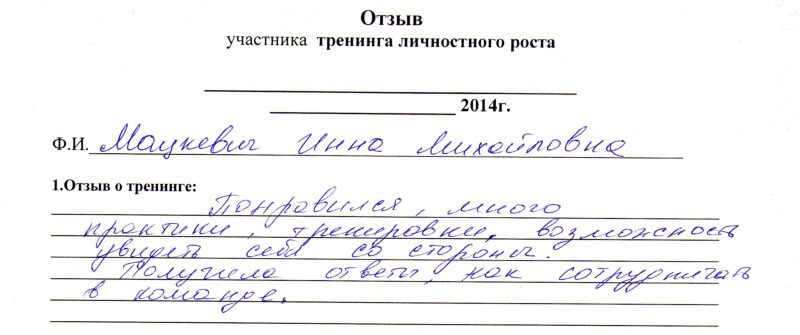 Отзыв
участника тренинга личностного роста
2014г.
Ф.И. Мацкевич Инна Михайловна
1.Отзыв о тренинге:
Понравился, много
практики, тренировки, возможность
увидеть себя со стороны.
Получила ответы, как сотрудничать
в команде.